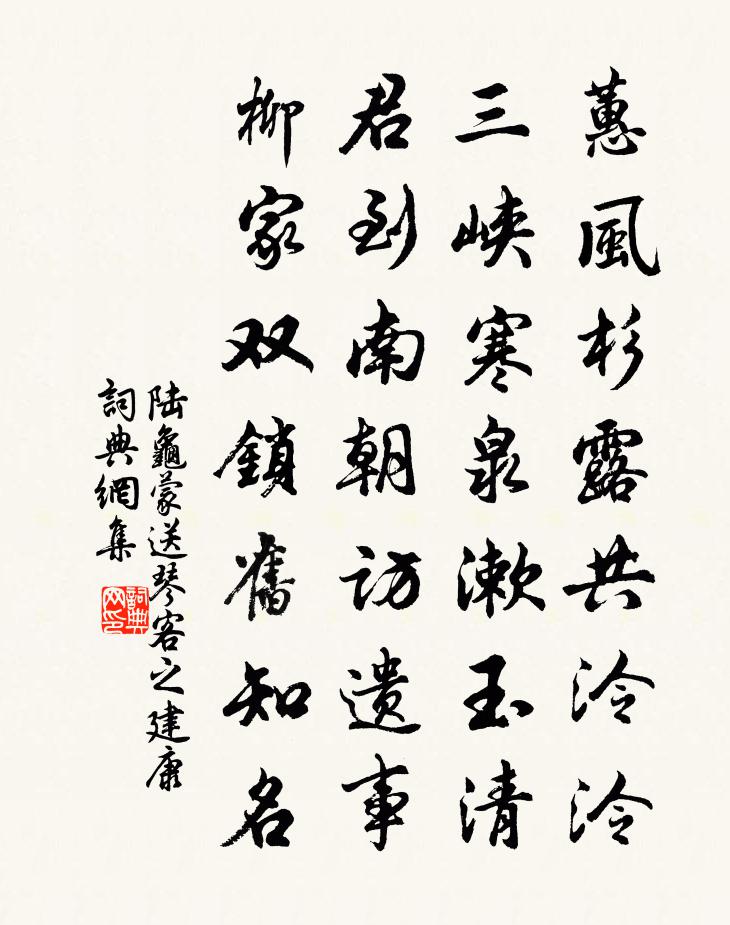 蕙風杉露共泠泠
三峽寒泉漱玉清
君到南朝訪遺事
柳家双鎖舊知名
陆龜蒙送琴客之建康
詞典網集
詞典网印